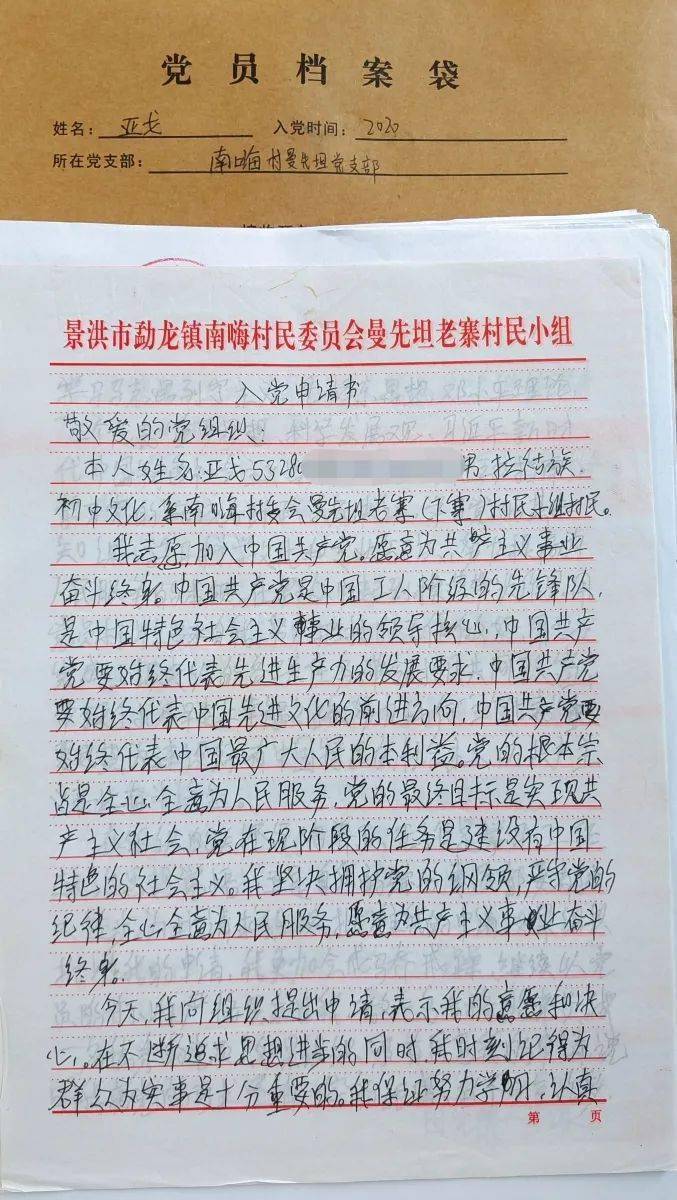 党员档案袋
姓名：亚戈 入党时间：2020
所在党支部：南嗨村曼先坦党支部
景洪市勐龙镇南嗨村民委员会曼先坦老寨村民小组
入党申请书
敬爱的党组织：
本人姓名：亚戈53280 男，拉祜族，
初中文化，系南嗨村委会曼先坦老寨（下寨）村民小组村民。
我志愿加入中国共产党。愿意为共产主义事业
奋斗终身。中国共产党是中国工人阶级的先锋队，
是中国特色社会主义事业的领导核心，中国共产
党要始终代表先进生产力的发展要求，中国共产党
要始终代表中国先进文化的前进方向，中国共产党要
始终代表中国最广大人民的本利益。党的根本宗
旨是全心全意为人民服务，党的最终目标是实现共
产主义社会，党在现阶段的任务是建设有中国
特色的社会主义。我坚决拥护党的纲领，严守党的
纪律，全心全意为人民服务，愿意为共产主义事业奋斗
终身。
今天，我向组织提出申请，表示我的意愿和决
心。在不断追求思想进步的同时我时刻记得为
群众为实事是十分重要的。我保证努力学习，认真
第 页